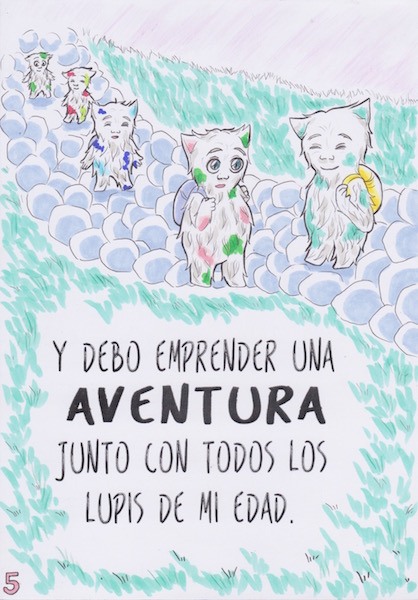 Y DEBO EMPRENDER UNA
AVENTURA
JUNTO CON TODOS LOS
LUPIS DE MI EDAD.
5